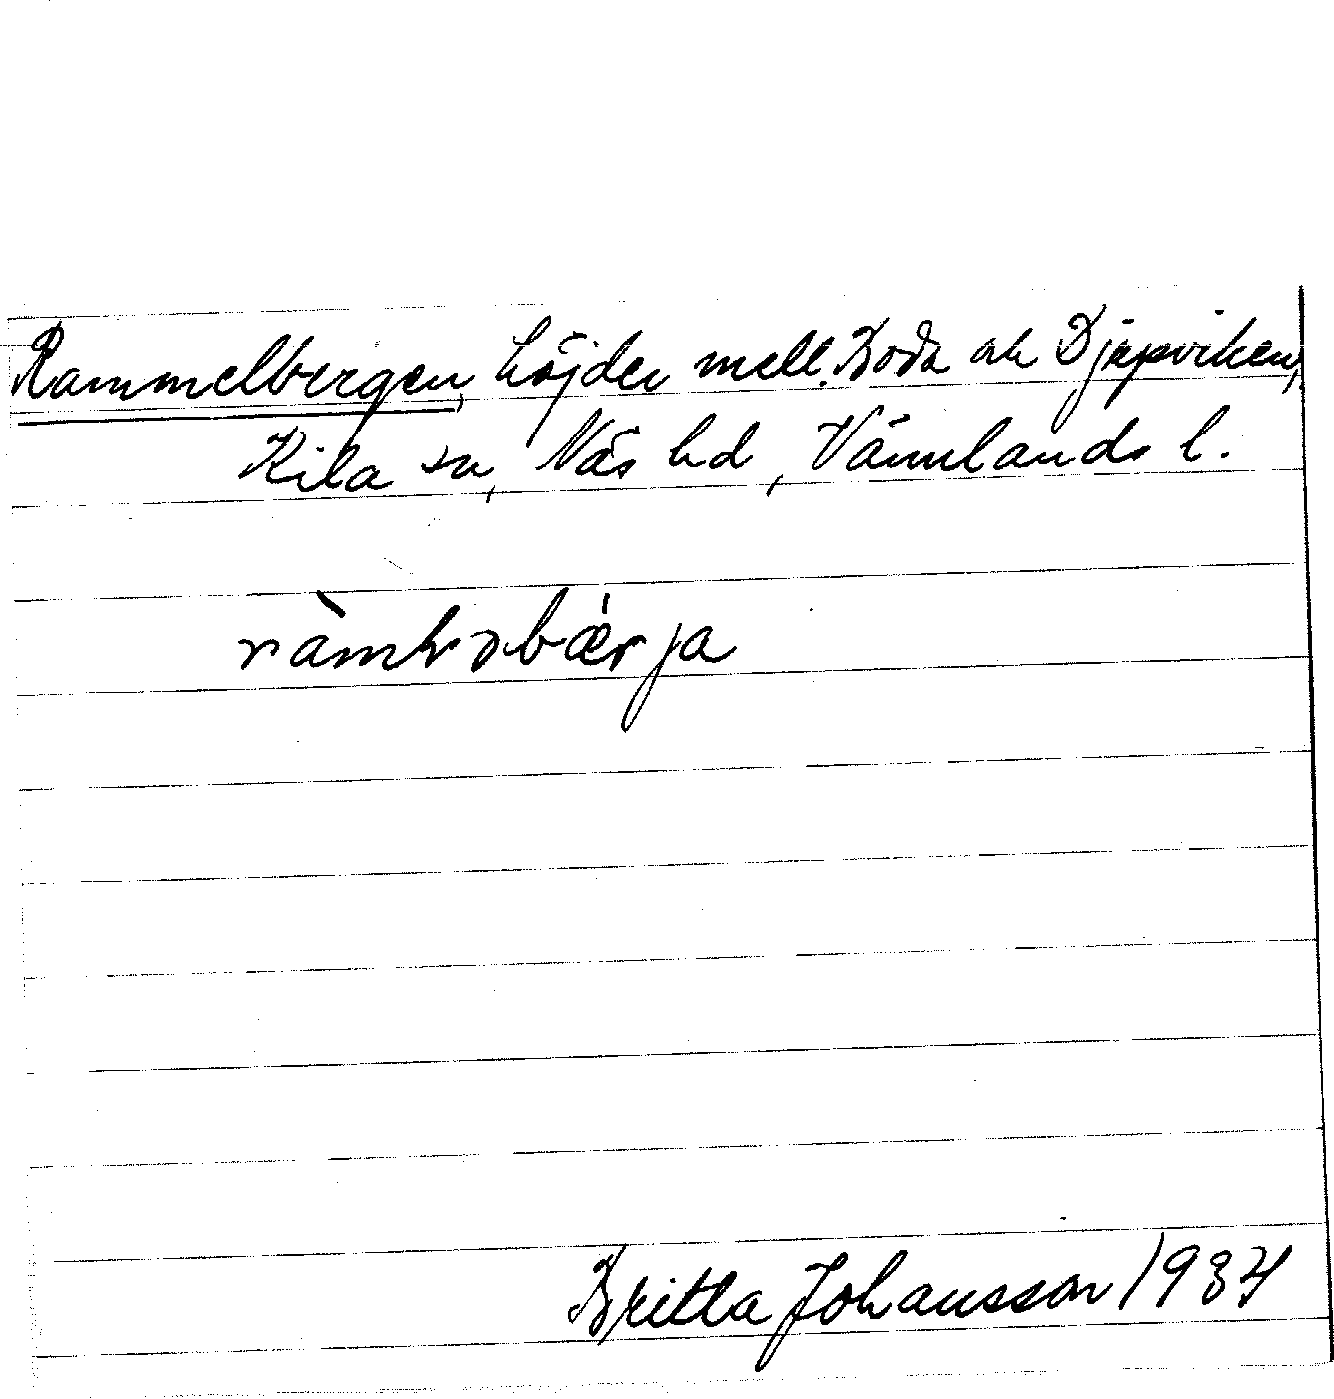 Rammelbergen, höjder mell. Boda och Djupviken,
Kila sn, Näs hd, Värmlands l.
Britta Johansson 1934